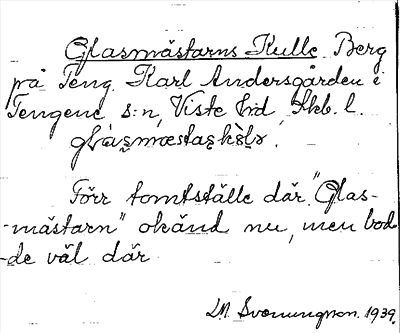 Glasmästarns Kulle. Berg
på Teng. Karl Andersgården i
Tengene s:n, Viste hd, Skb. l.
glàsmæstaṣkɞ̀lɞ.
Förr tomtställe där "Glas-
-mästarn" okänd nu, men bod-
-de väl där
LM Svenungsson. 1939.